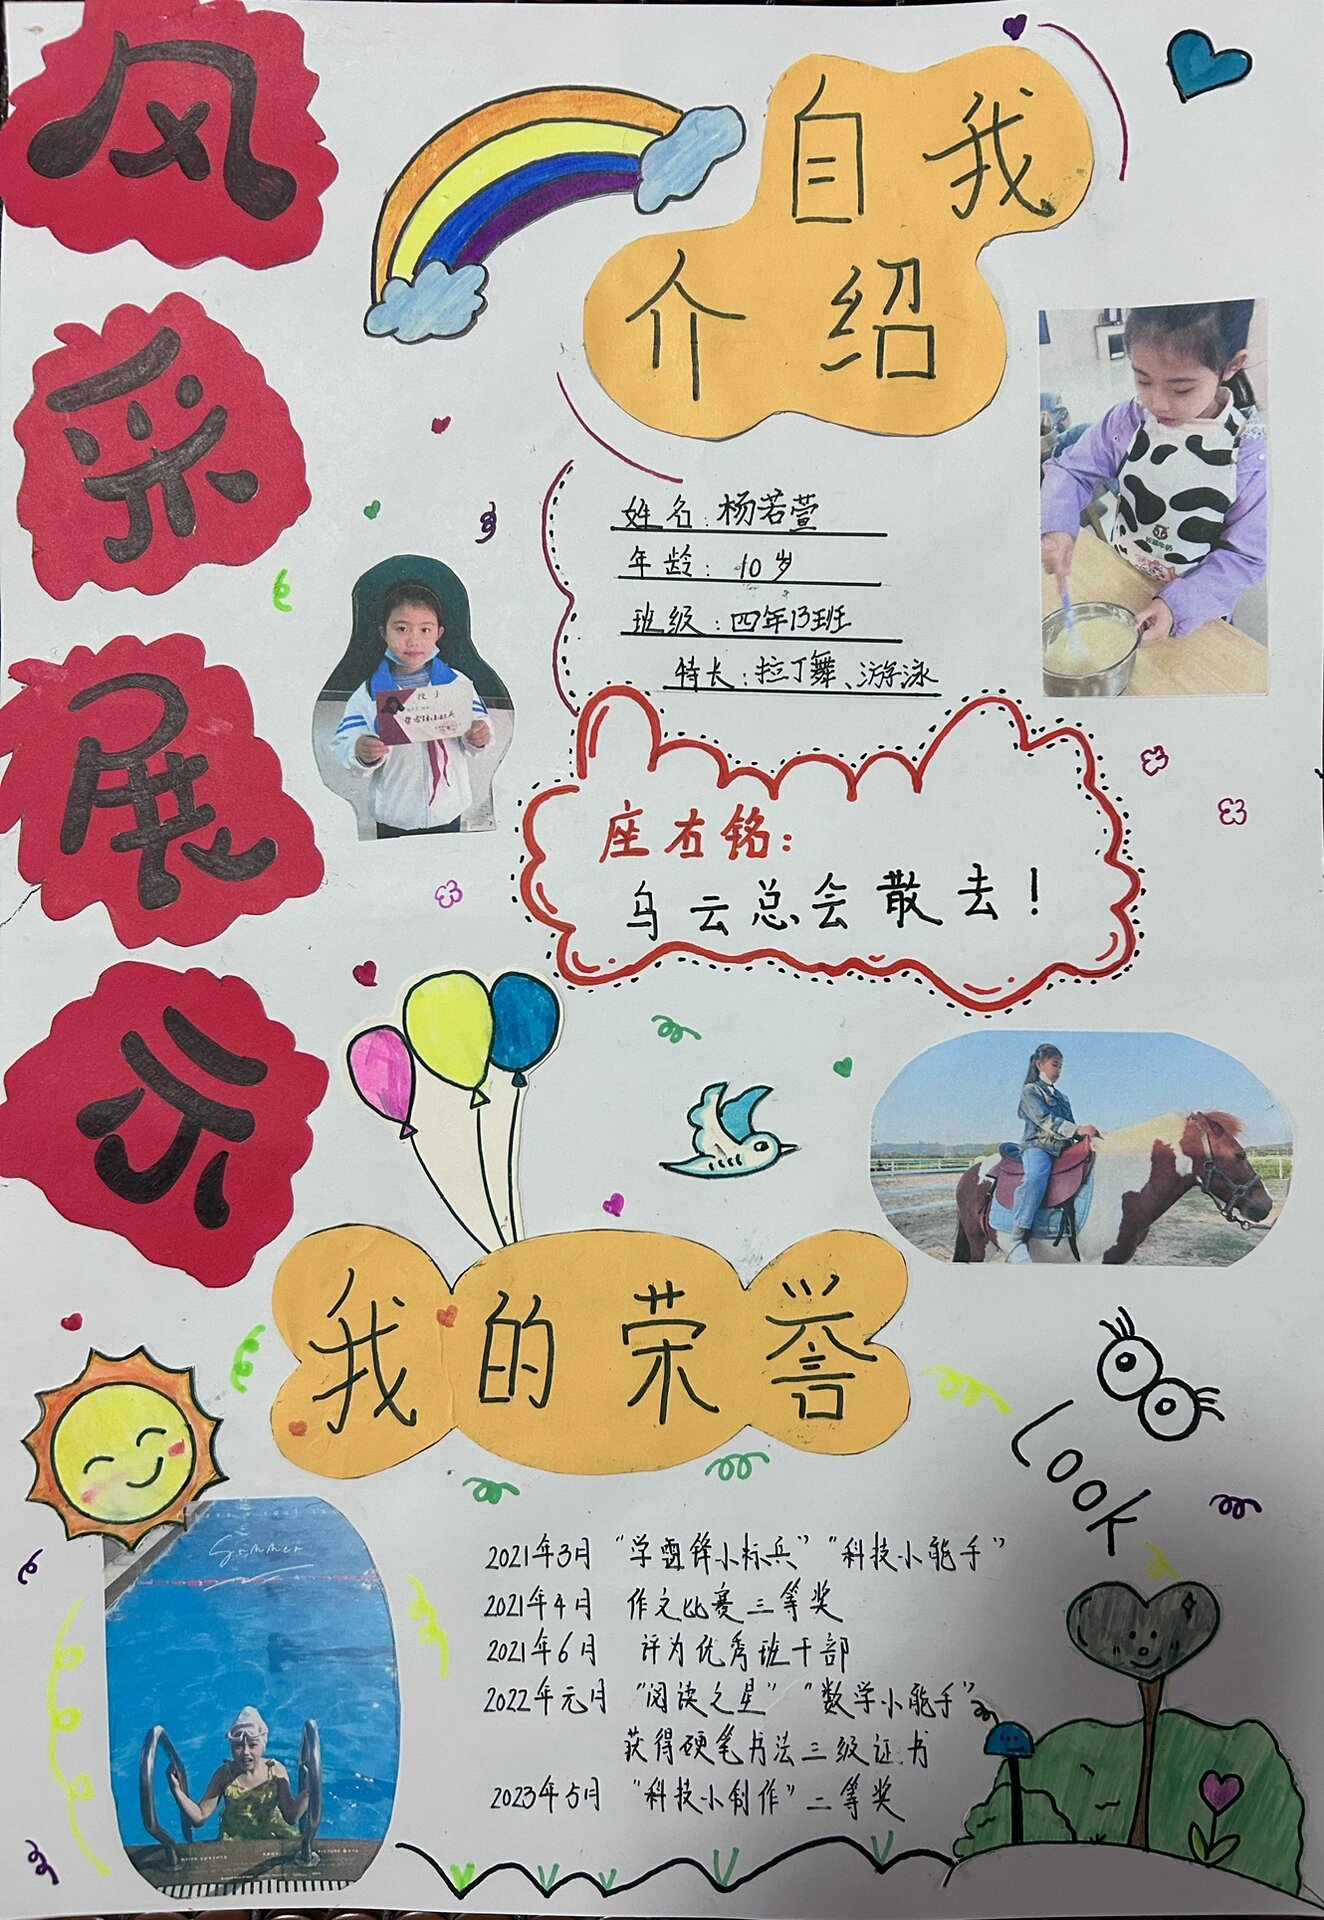 风采展示
自我
介绍
姓名：杨若萱
年龄：10岁
班级：四年13班
特长：拉丁舞、游泳
座右铭：
乌云总会散去！
我的荣誉
Look
Summer
2021年3月 “学雷锋小标兵” “科技小能手”
2021年4月 作文比赛三等奖
2021年6月 评为优秀班干部
2022年元月 “阅读之星” “数学小能手”
获得硬笔书法三级证书
2023年5月 “科技小制作” 二等奖